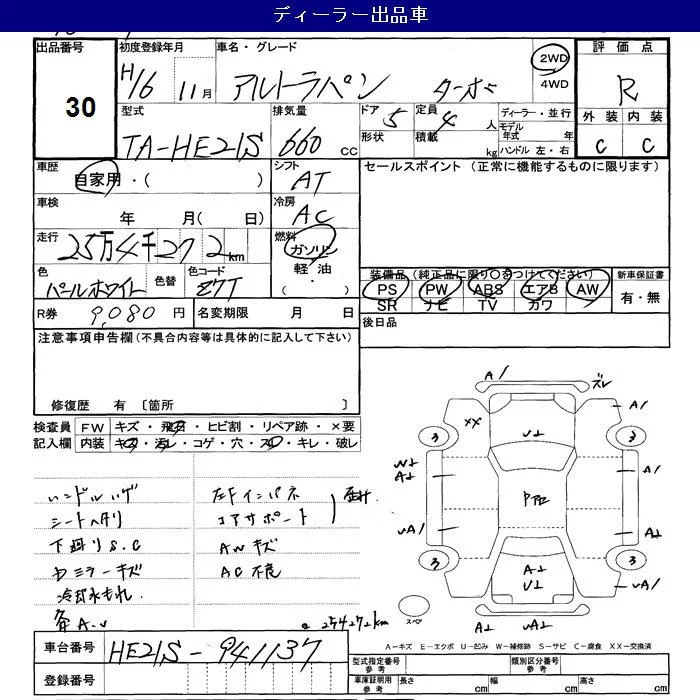 ディーラー出品車
出品番号 初度登録年月 車名・グレード 2WD 評価点
30 H16 11月 アルトラパン ターボ 4WD R
型式 排気量 ドア 定員 ディーラー・並行 外装 内装
TA-HE21S 660 CC 5 4人 モデル年式 年 C C
形状 積載 kg ハンドル 左・右
車歴 シフト セールスポイント(正常に機能するものに限ります)
自家用・( ) AT
車検 冷房
年 月( 日) AC
走行 燃料
25万4千272km ガソリン
色 色替 色コード 軽油 装備品(純正品に限り○をつけてください) 新車保証書
パールホワイト Z7T ・( ) PS PW ABS エアB AW 有・無
SR ナビ TV カワ
R券 9,080円 名変期限 月 日 後日品
注意事項申告欄(不具合内容等は具体的に記入して下さい)
修復歴 有 〔箇所 〕
検査員 FW キズ・飛石・ヒビ割・リペア跡・×要
記入欄 内装 キズ・汚れ・コゲ・穴・スレ・キレ・破レ
ハンドルハゲ 左Fインパネ
シートヘタリ コアサポート
下廻りS.C AWキズ
ミラーキズ AC不良
冷却水もれ
各A.U 254272km
A1 ズレ
XX U2 A1
3 3
W2 A2 A1
U2
UA1 A2
3 3
A2 U2 UA1
スペア A2 UA2
A-キズ E-エクボ U-凹み W-補修跡 S-サビ C-腐食 XX-交換済
車台番号 HE21S-941137
登録番号
型式指定番号 参考 類別区分番号 参考
車庫証明用 参考 長さ cm 幅 cm 高さ cm